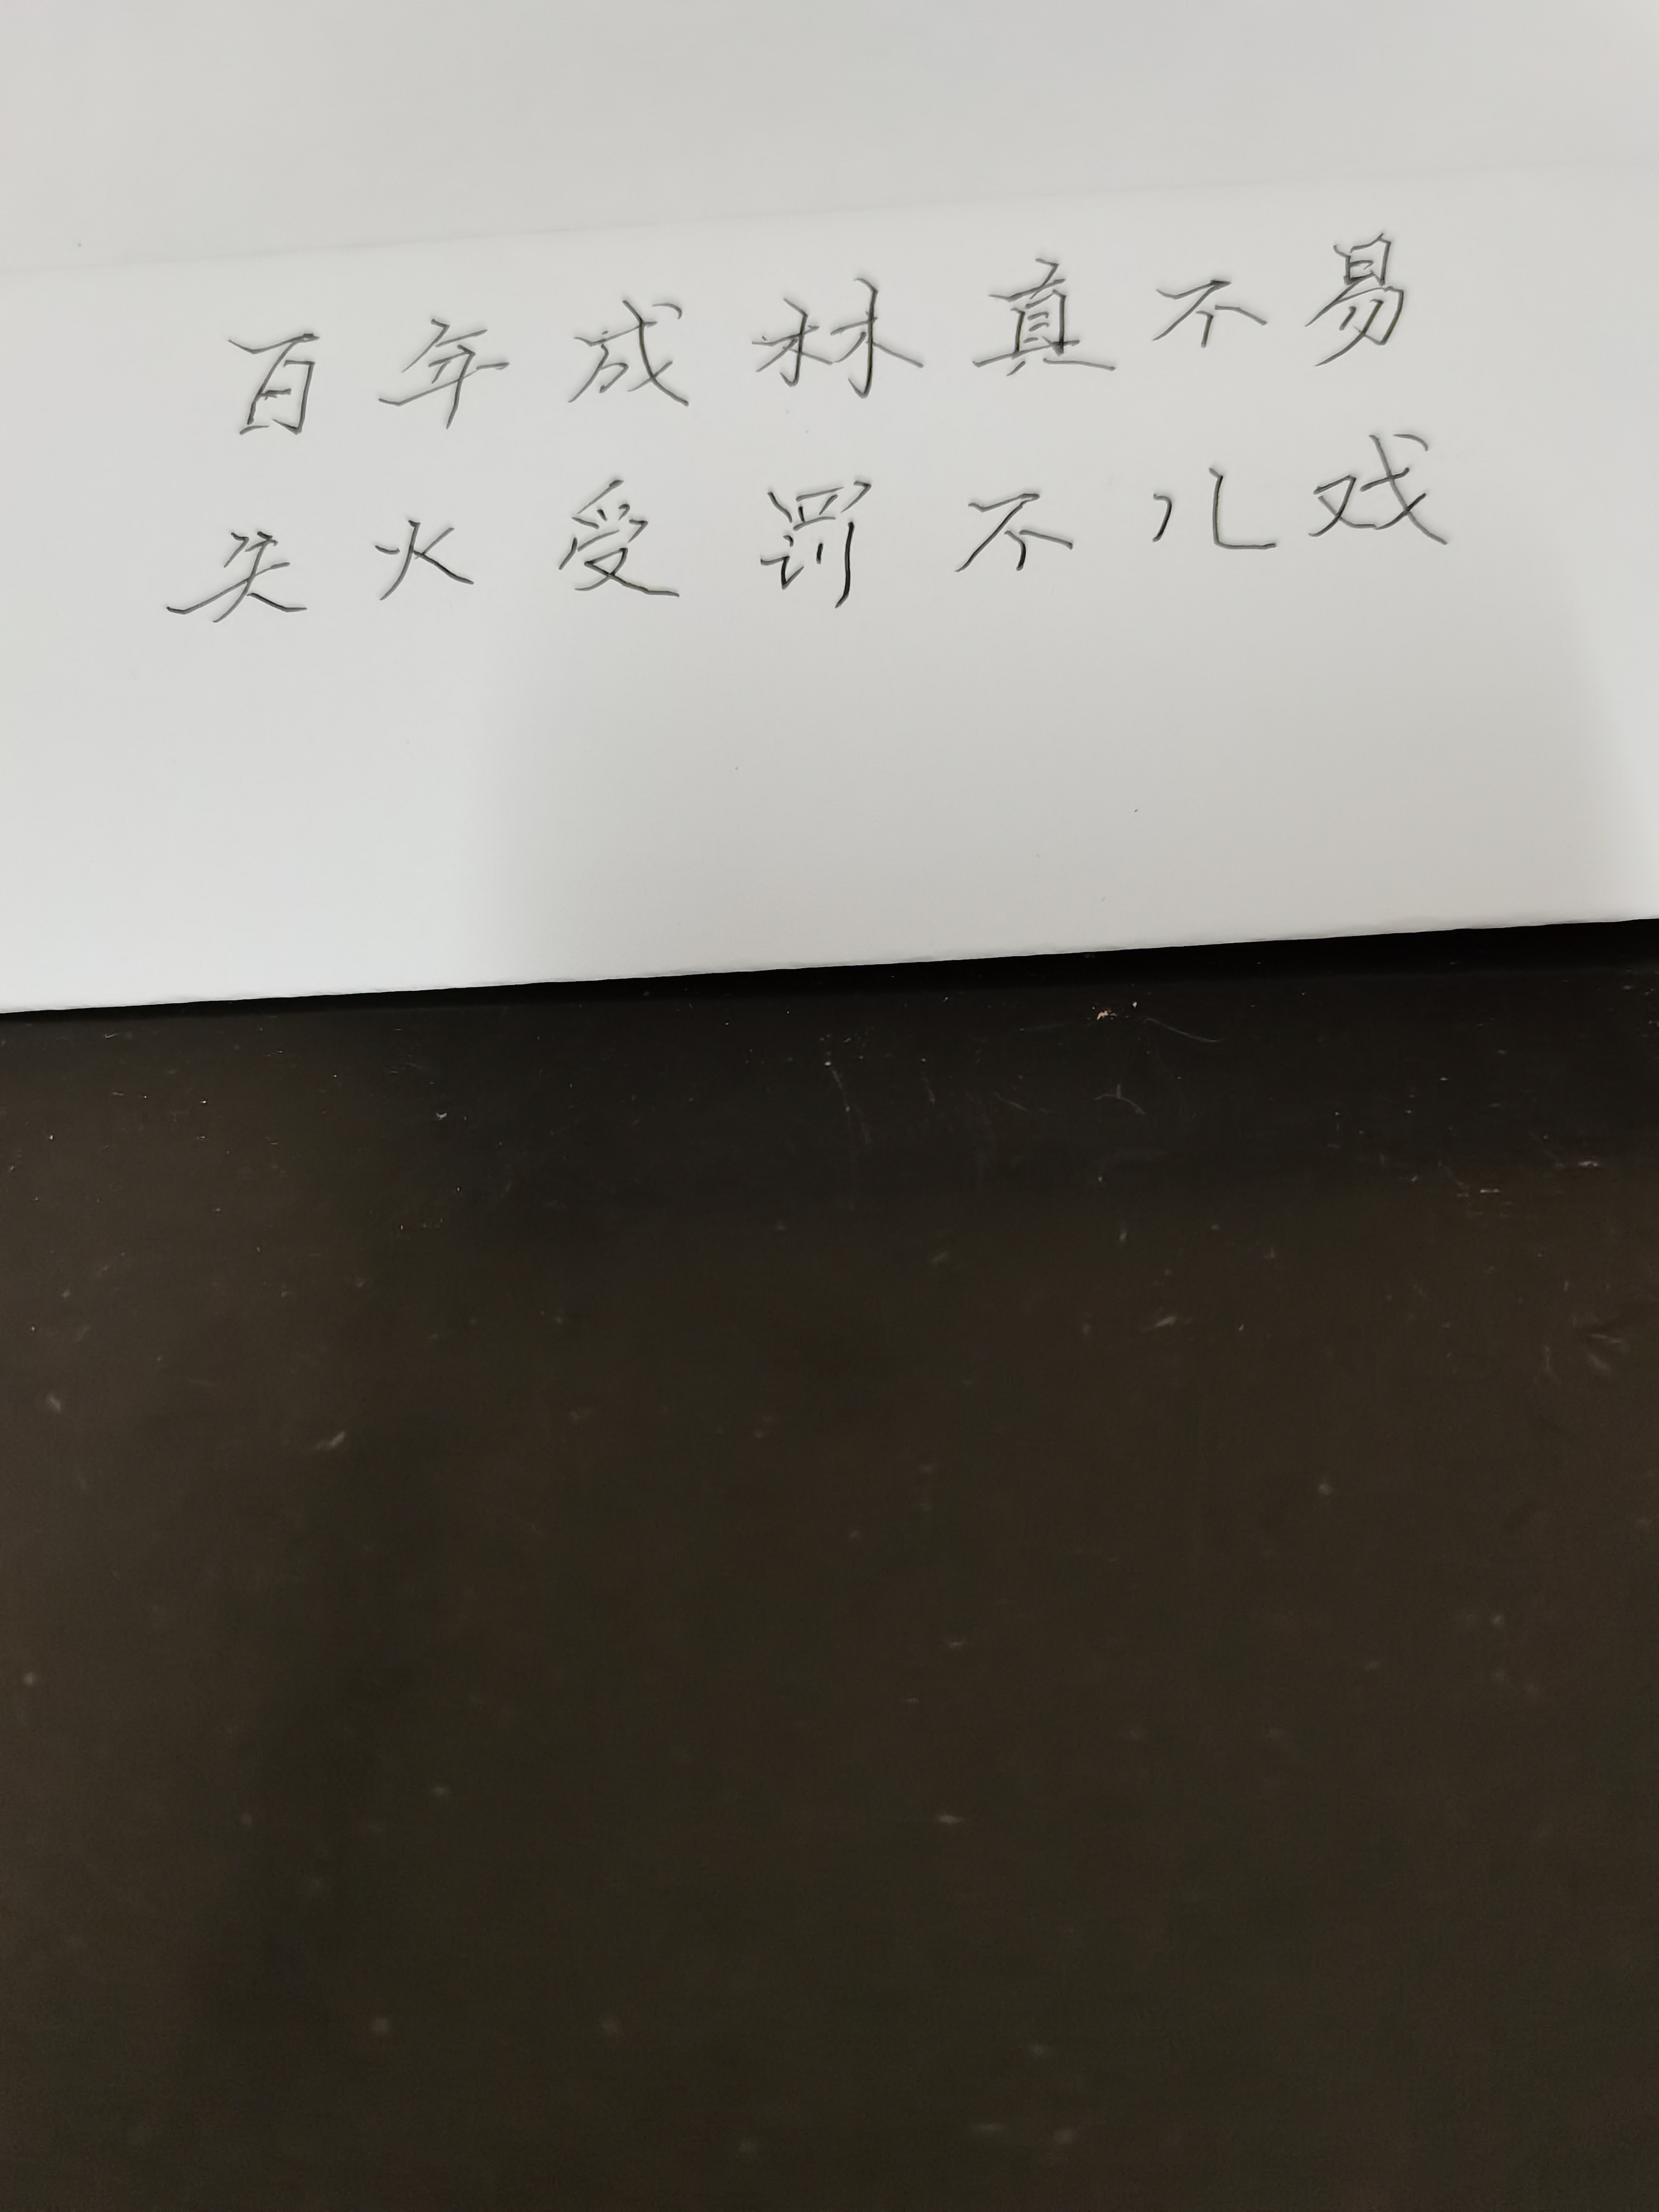 百年成林真不易
失火受罚不儿戏